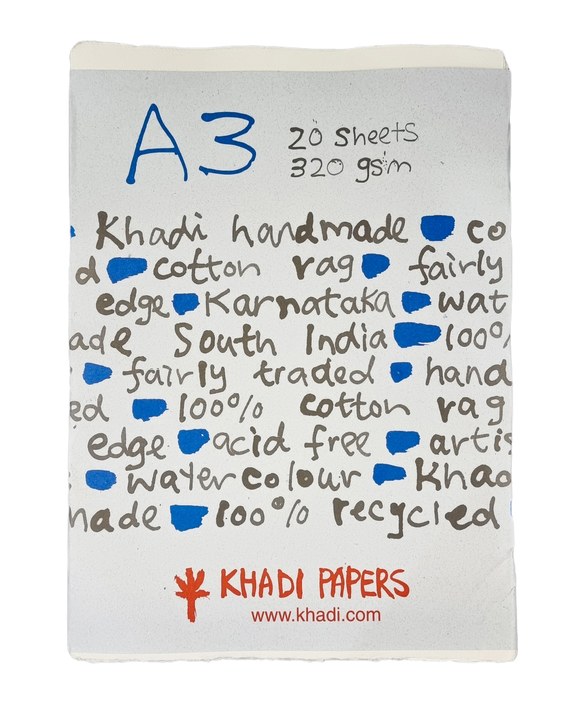 A3
20 sheets
320 gsm
Khadi handmade co
d cotton rag fairly
edge Karnataka wat
ade South India 100%
fairly traded hand
ed 100% cotton rag
edge acid free artis
watercolour Khad
made 100% recycled
KHADI PAPERS
www.khadi.com